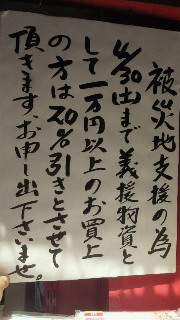 被災地支援の為
4/30(土)まで義援物資と
して一万円以上のお買上
の方は20%引きとさせて
頂きます。お申し出下さいませ。